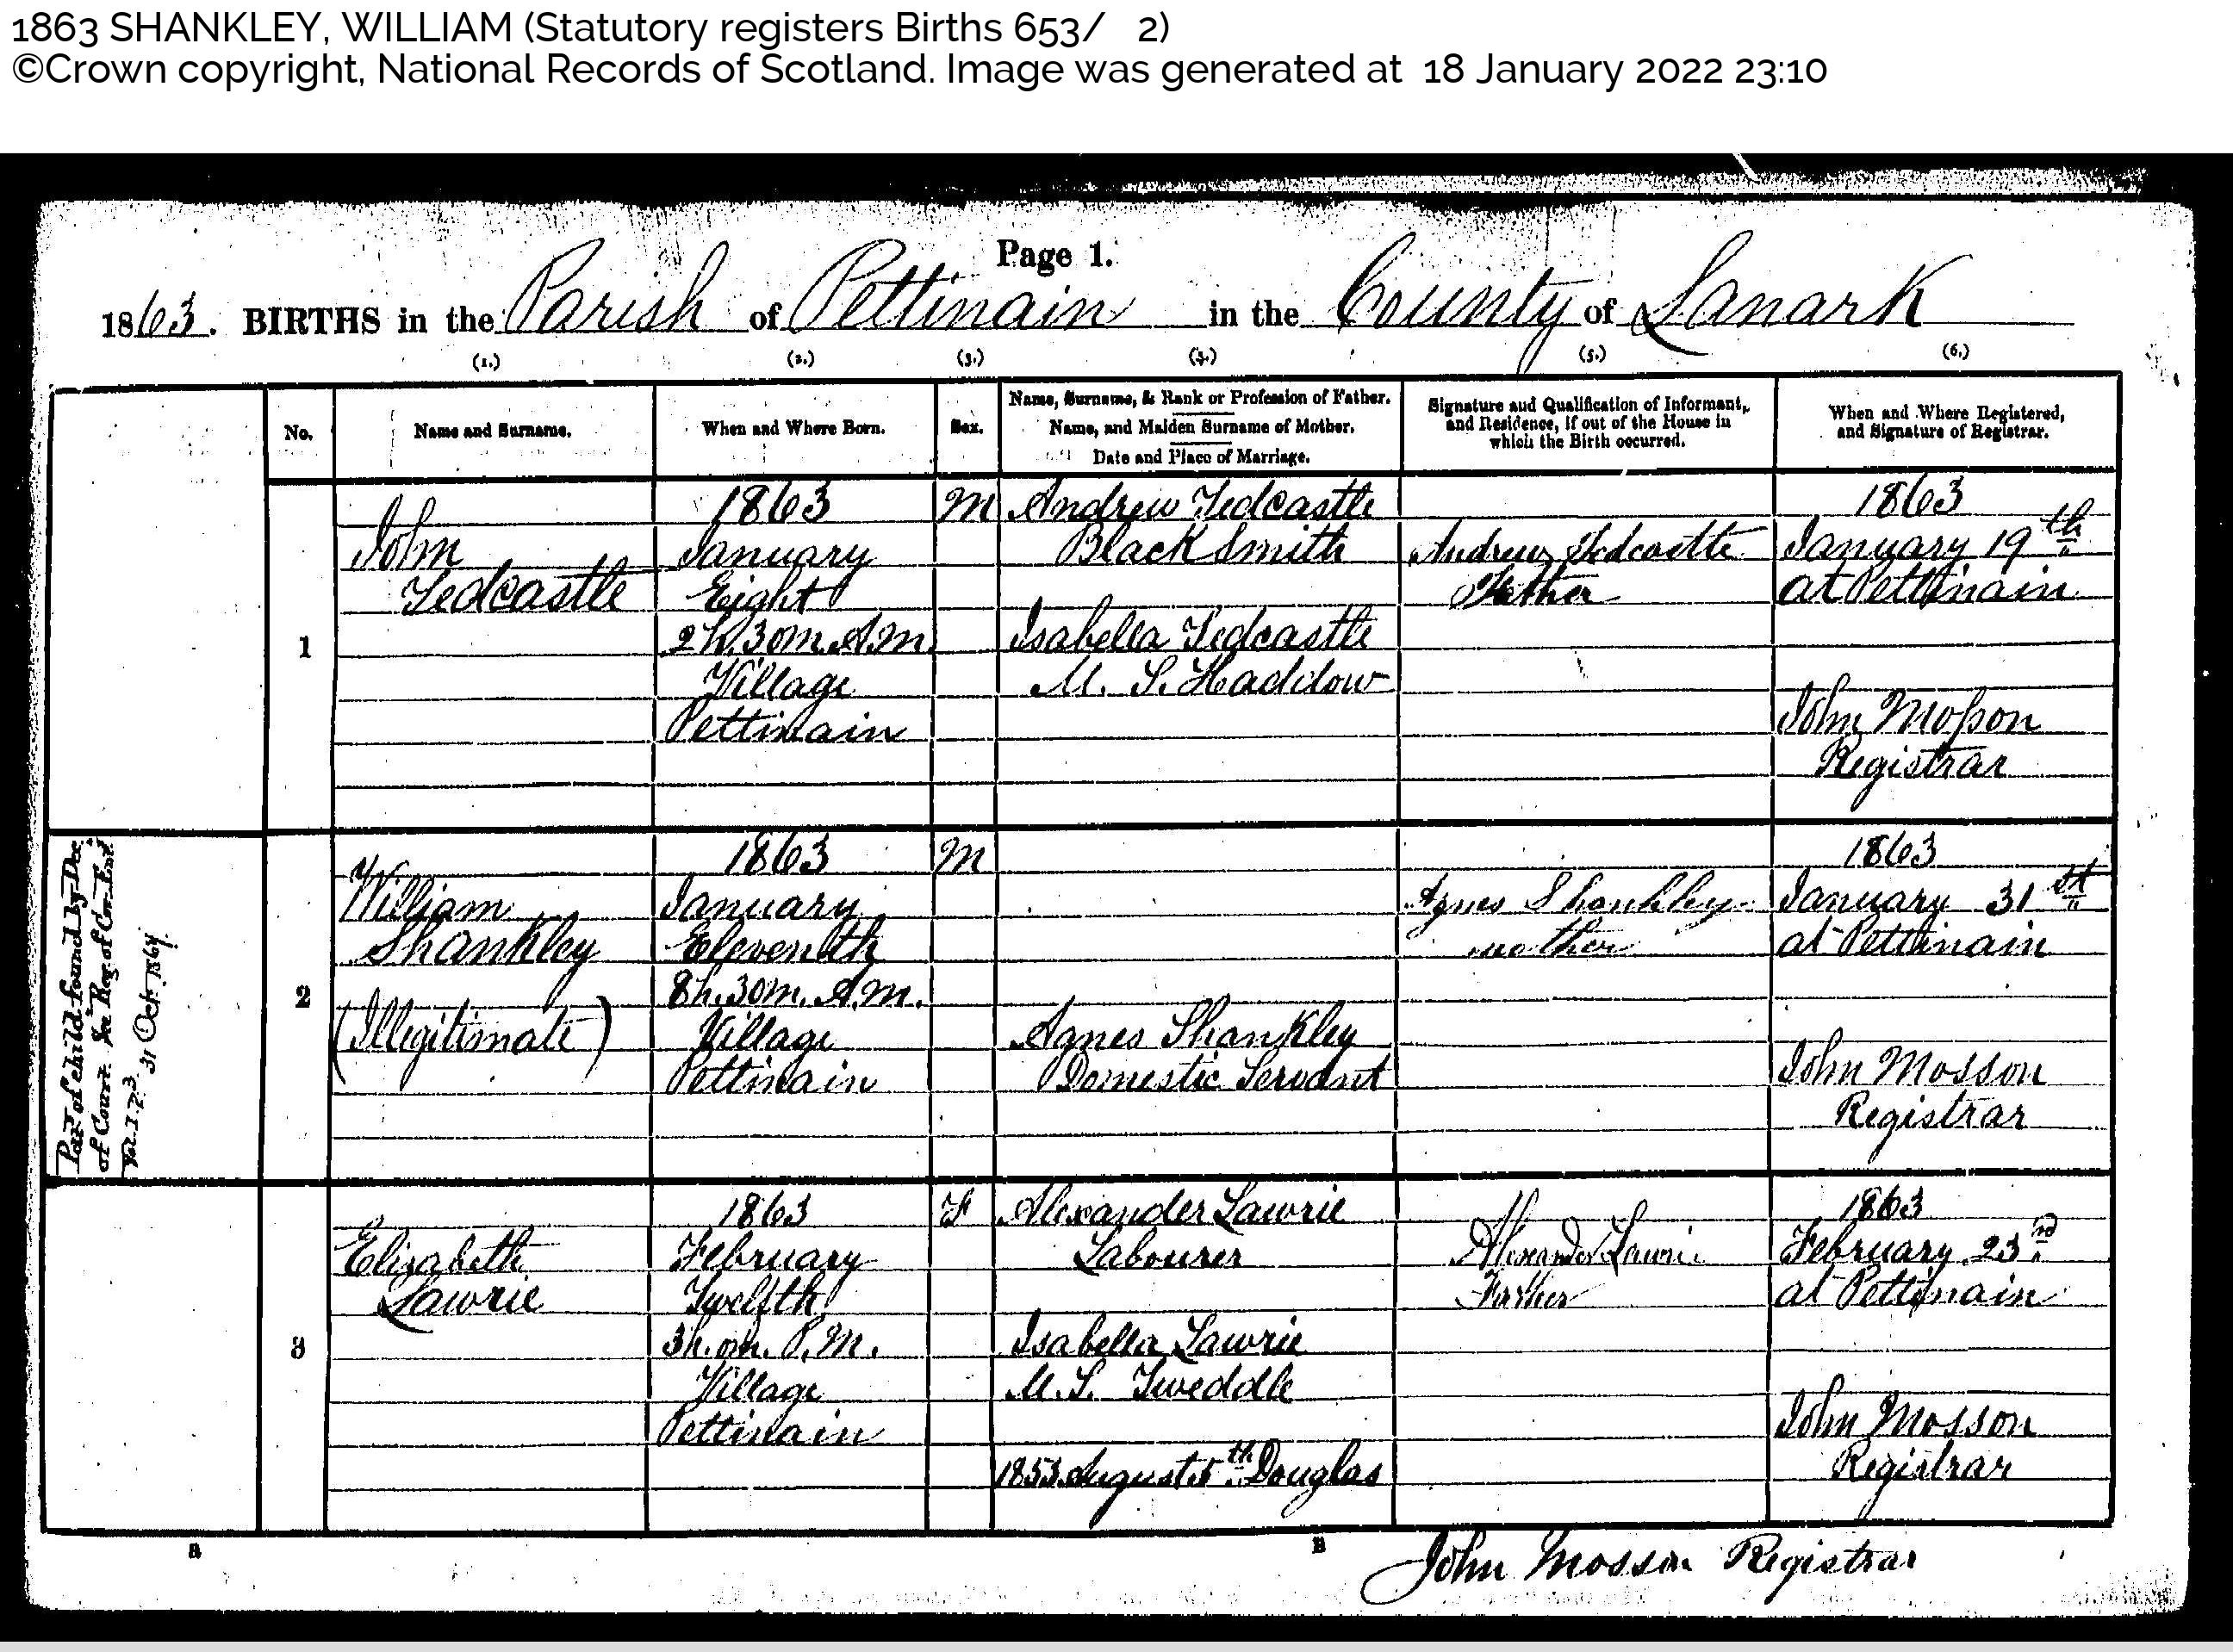 1863 SHANKLEY, WILLIAM (Statutory registers Births 653/ 2)
©Crown copyright, National Records of Scotland. Image was generated at 18 January 2022 23:10
Page 1.
1863. BIRTHS in the Parish of Pettinain in the County of Lanark
(1.) (2.) (3.) (4.) (5.) (6.)
No.
Name and Surname.
When and Where Born.
Sex.
Name, Surname, & Rank or Profession of Father.
Name, and Maiden Surname of Mother.
Date and Place of Marriage.
Signature and Qualification of Informant,
and Residence, if out of the House in
which the Birth occurred.
When and Where Registered,
and Signature of Registrar.
1
John
Tedcastle
1863
January
Eight
2h. 30m. A.M.
Village
Pettinain
M
Andrew Tedcastle
Black Smith
Isabella Tedcastle
M. S. Haddow
Andrew Tedcastle
Father
1863
January 19th
at Pettinain
John Mosson
Registrar
Pat of child found by Dec.
of Court. See Reg of Cor. Ent.
Vol. 1. P. 3
31 Oct. 1864.
2
William
Shankley
(Illegitimate)
1863
January
Eleventh
8h. 30m. A.M.
Village
Pettinain
M
Agnes Shankley
Domestic Servant
Agnes Shankley
mother
1863
January 31st
at Pettinain
John Mosson
Registrar
3
Elizabeth
Lawrie
1863
February
Twelfth
3h. 0m. P.M.
Village
Pettinain
F
Alexander Lawrie
Labourer
Isabella Lawrie
M.S. Tweddle
1853 August 5th Douglas
Alexander Lawrie
Father
1863
February 23rd
at Pettinain
John Mosson
Registrar
B
John Mosson Registrar